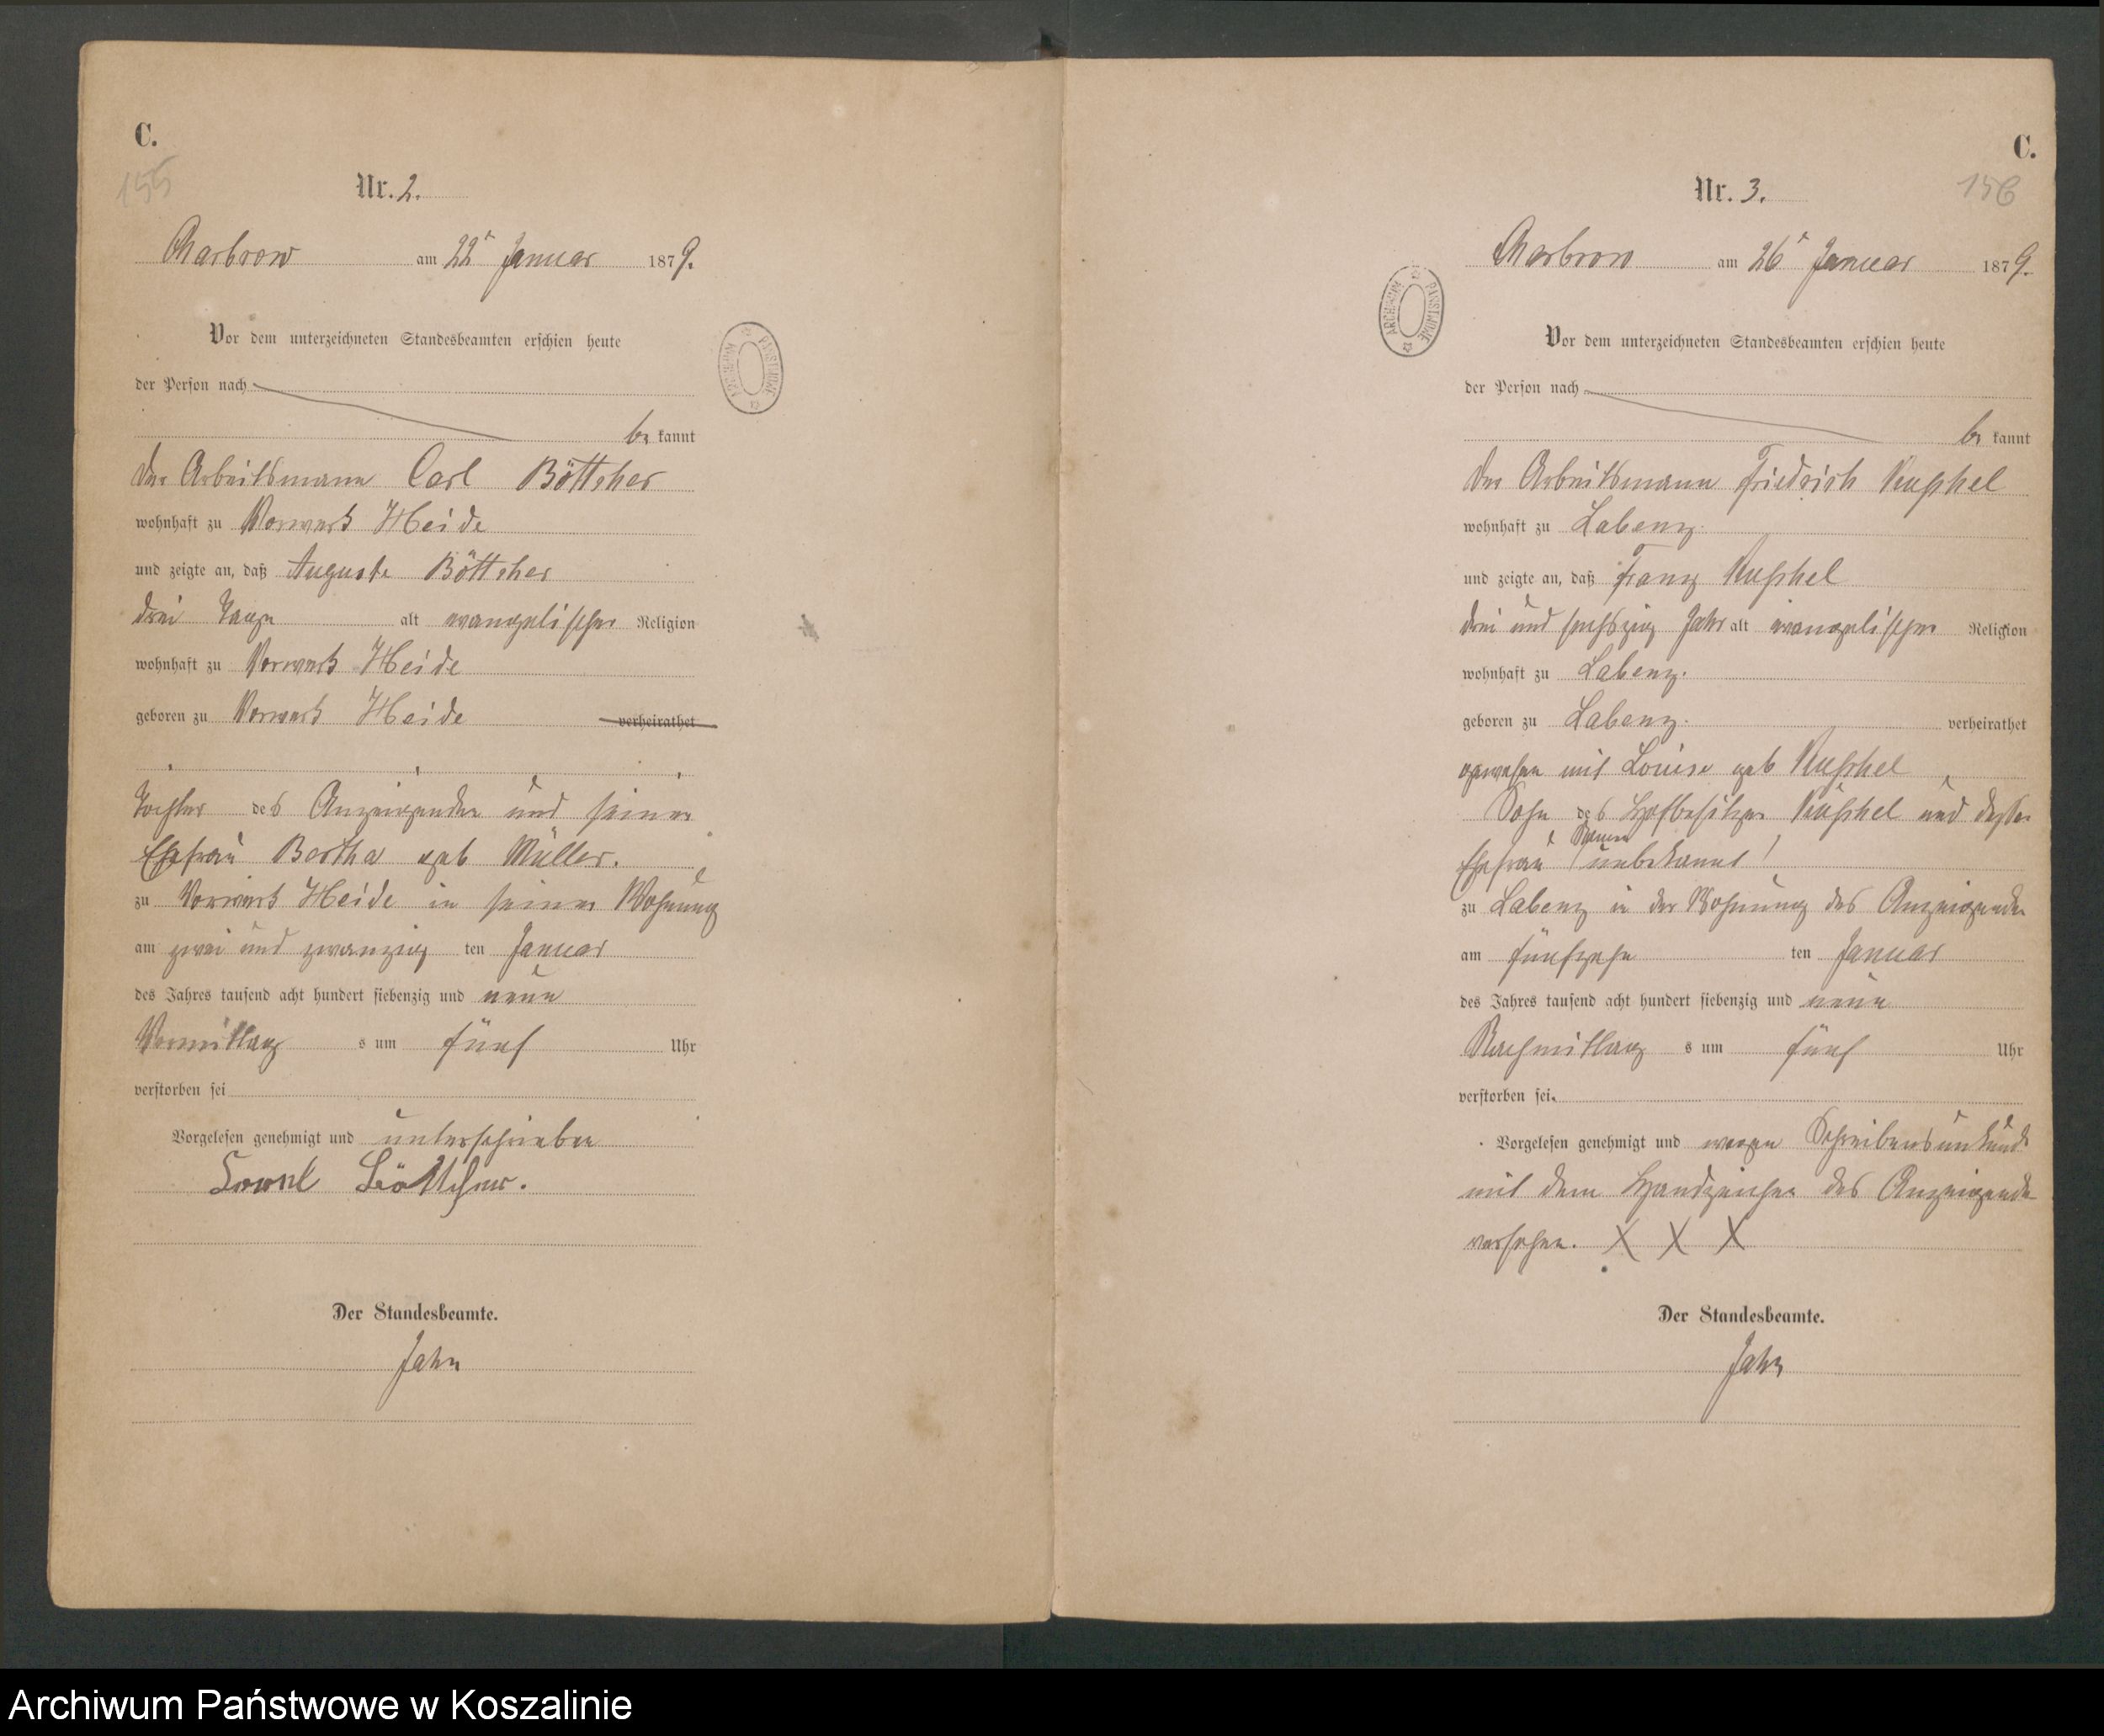 C.
155
Nr. 2.
Charbrow am 22t Januar 1879.
Vor dem unterzeichneten Standesbeamten erschien heute
der Person nach
be kannt
der Arbeitsmann Carl Böttcher
wohnhaft zu Vorwerk Heide
und zeigte an, daß Auguste Böttcher
drei Tage alt evangelischer Religion
wohnhaft zu Vorwerk Heide
geboren zu Vorwerk Heide verheirathet
Tochter des Anzeigenden und seiner
Ehefrau Bertha geb Müller.
zu Vorwerk Heide in seiner Wohnung
am zwei und zwanzig ten Januar
des Jahres tausend acht hundert siebenzig und neun
Vormittag s um fünf Uhr
verstorben sei
Vorgelesen genehmigt und unterschrieben
Böttcher.
Der Standesbeamte.
Jahn
ARCHIWUM PAŃSTWOWE
C.
156
Nr. 3.
Charbrow am 26t Januar 1879.
Vor dem unterzeichneten Standesbeamten erschien heute
der Person nach
be kannt
der Arbeitsmann Friedrich
wohnhaft zu Labenz.
und zeigte an, daß Franz
drei und sechszig Jahr alt evangelischer Religion
wohnhaft zu Labenz.
geboren zu Labenz. verheirathet
gewesen mit Louise geb
Sohn des Hofbesitzer und dessen
Ehefrau (Namen unbekannt)
zu Labenz in der Wohnung des Anzeigenden
am fünfzehn ten Januar
des Jahres tausend acht hundert siebenzig und neun
Nachmittag s um fünf Uhr
verstorben sei.
Vorgelesen genehmigt und wegen Schreibensunkunde
mit dem Handzeichen des Anzeigenden
versehen. X X X
Der Standesbeamte.
Jahn
ARCHIWUM PAŃSTWOWE
Archiwum Państwowe w Koszalinie